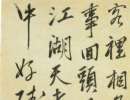 客裡相
事回頭
江湖天
中好